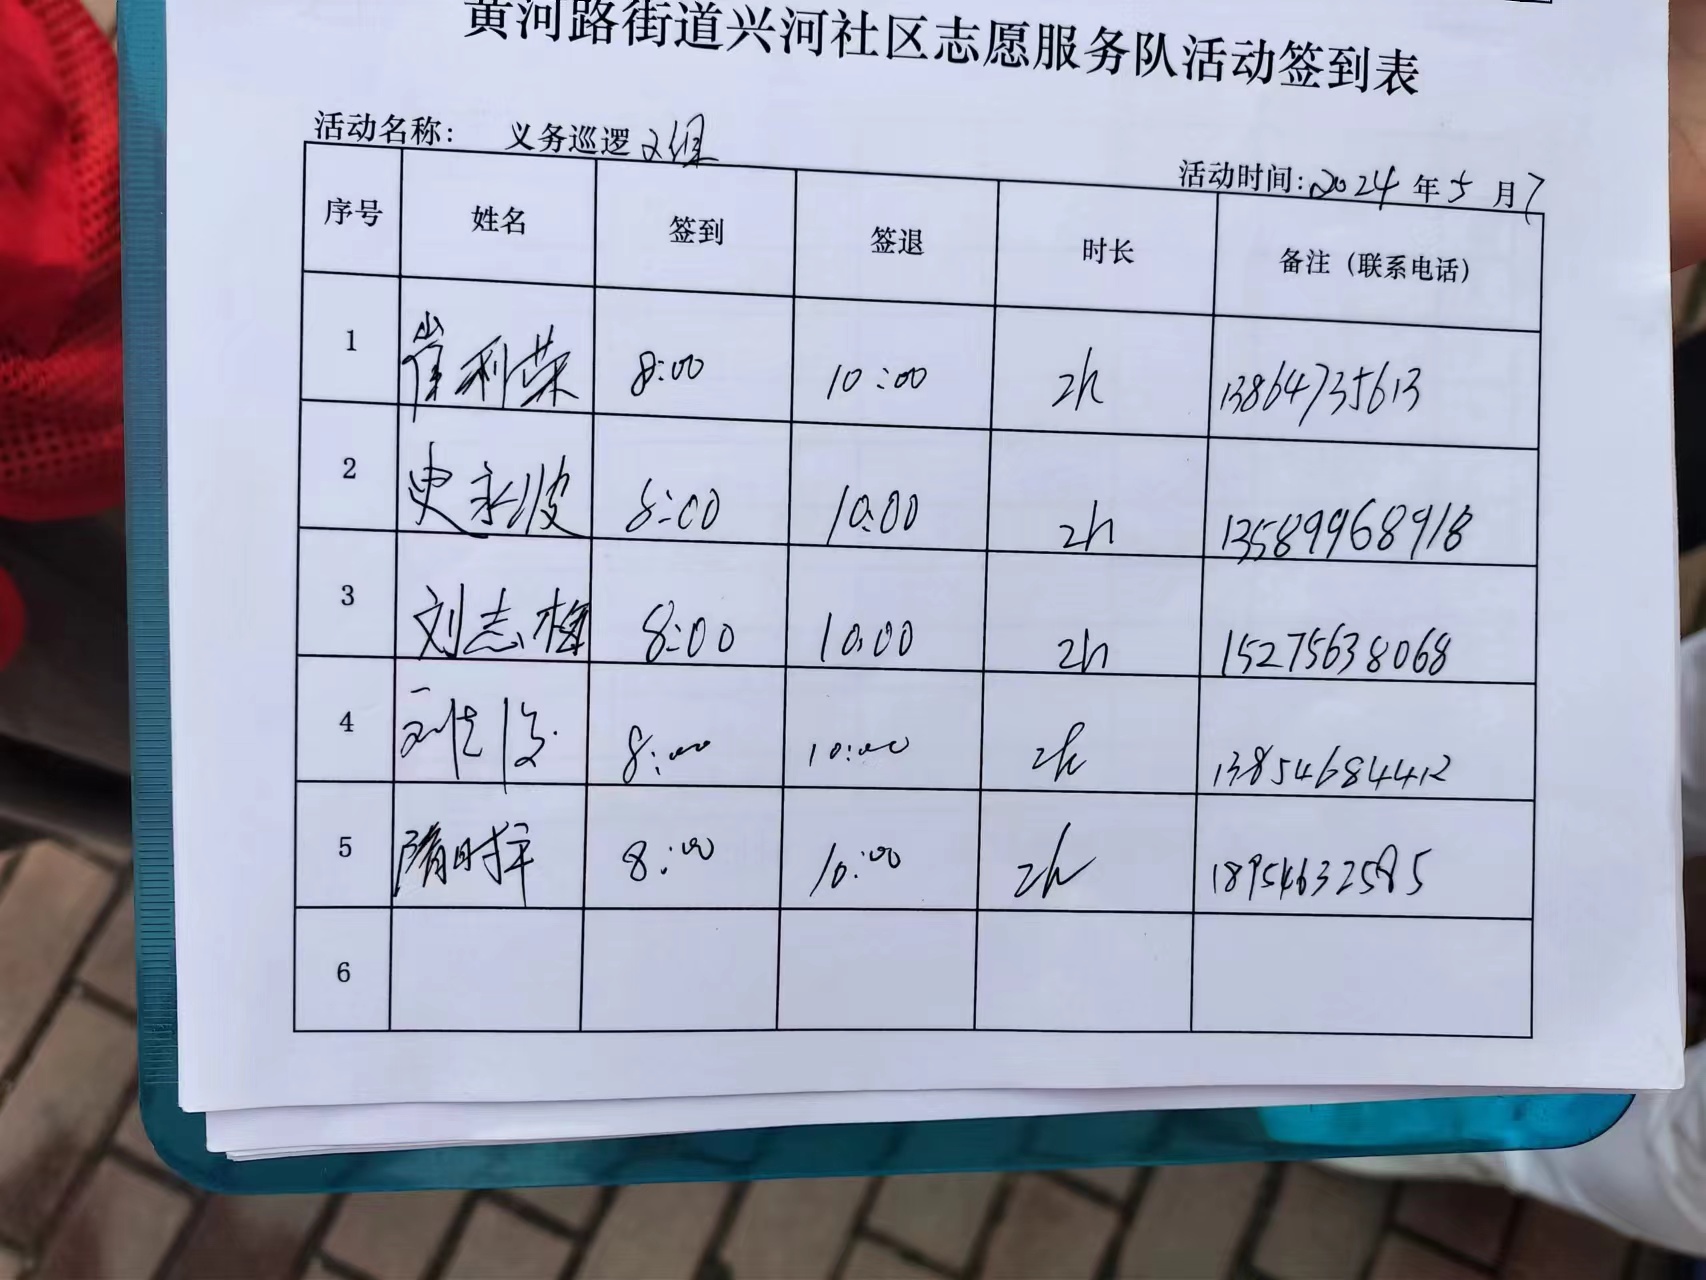 黄河路街道兴河社区志愿服务队活动签到表
活动名称: 义务巡逻2组
活动时间: 2024年5月7
序号 姓名 签到 签退 时长 备注（联系电话）
1 崔利荣 8:00 10:00 2h 13864735613
2 史永波 8:00 10:00 2h 13589968918
3 刘志梅 8:00 10:00 2h 15275638068
4 8:00 10:00 2h 13854684412
5 隋时平 8:00 10:00 2h 18954632585
6